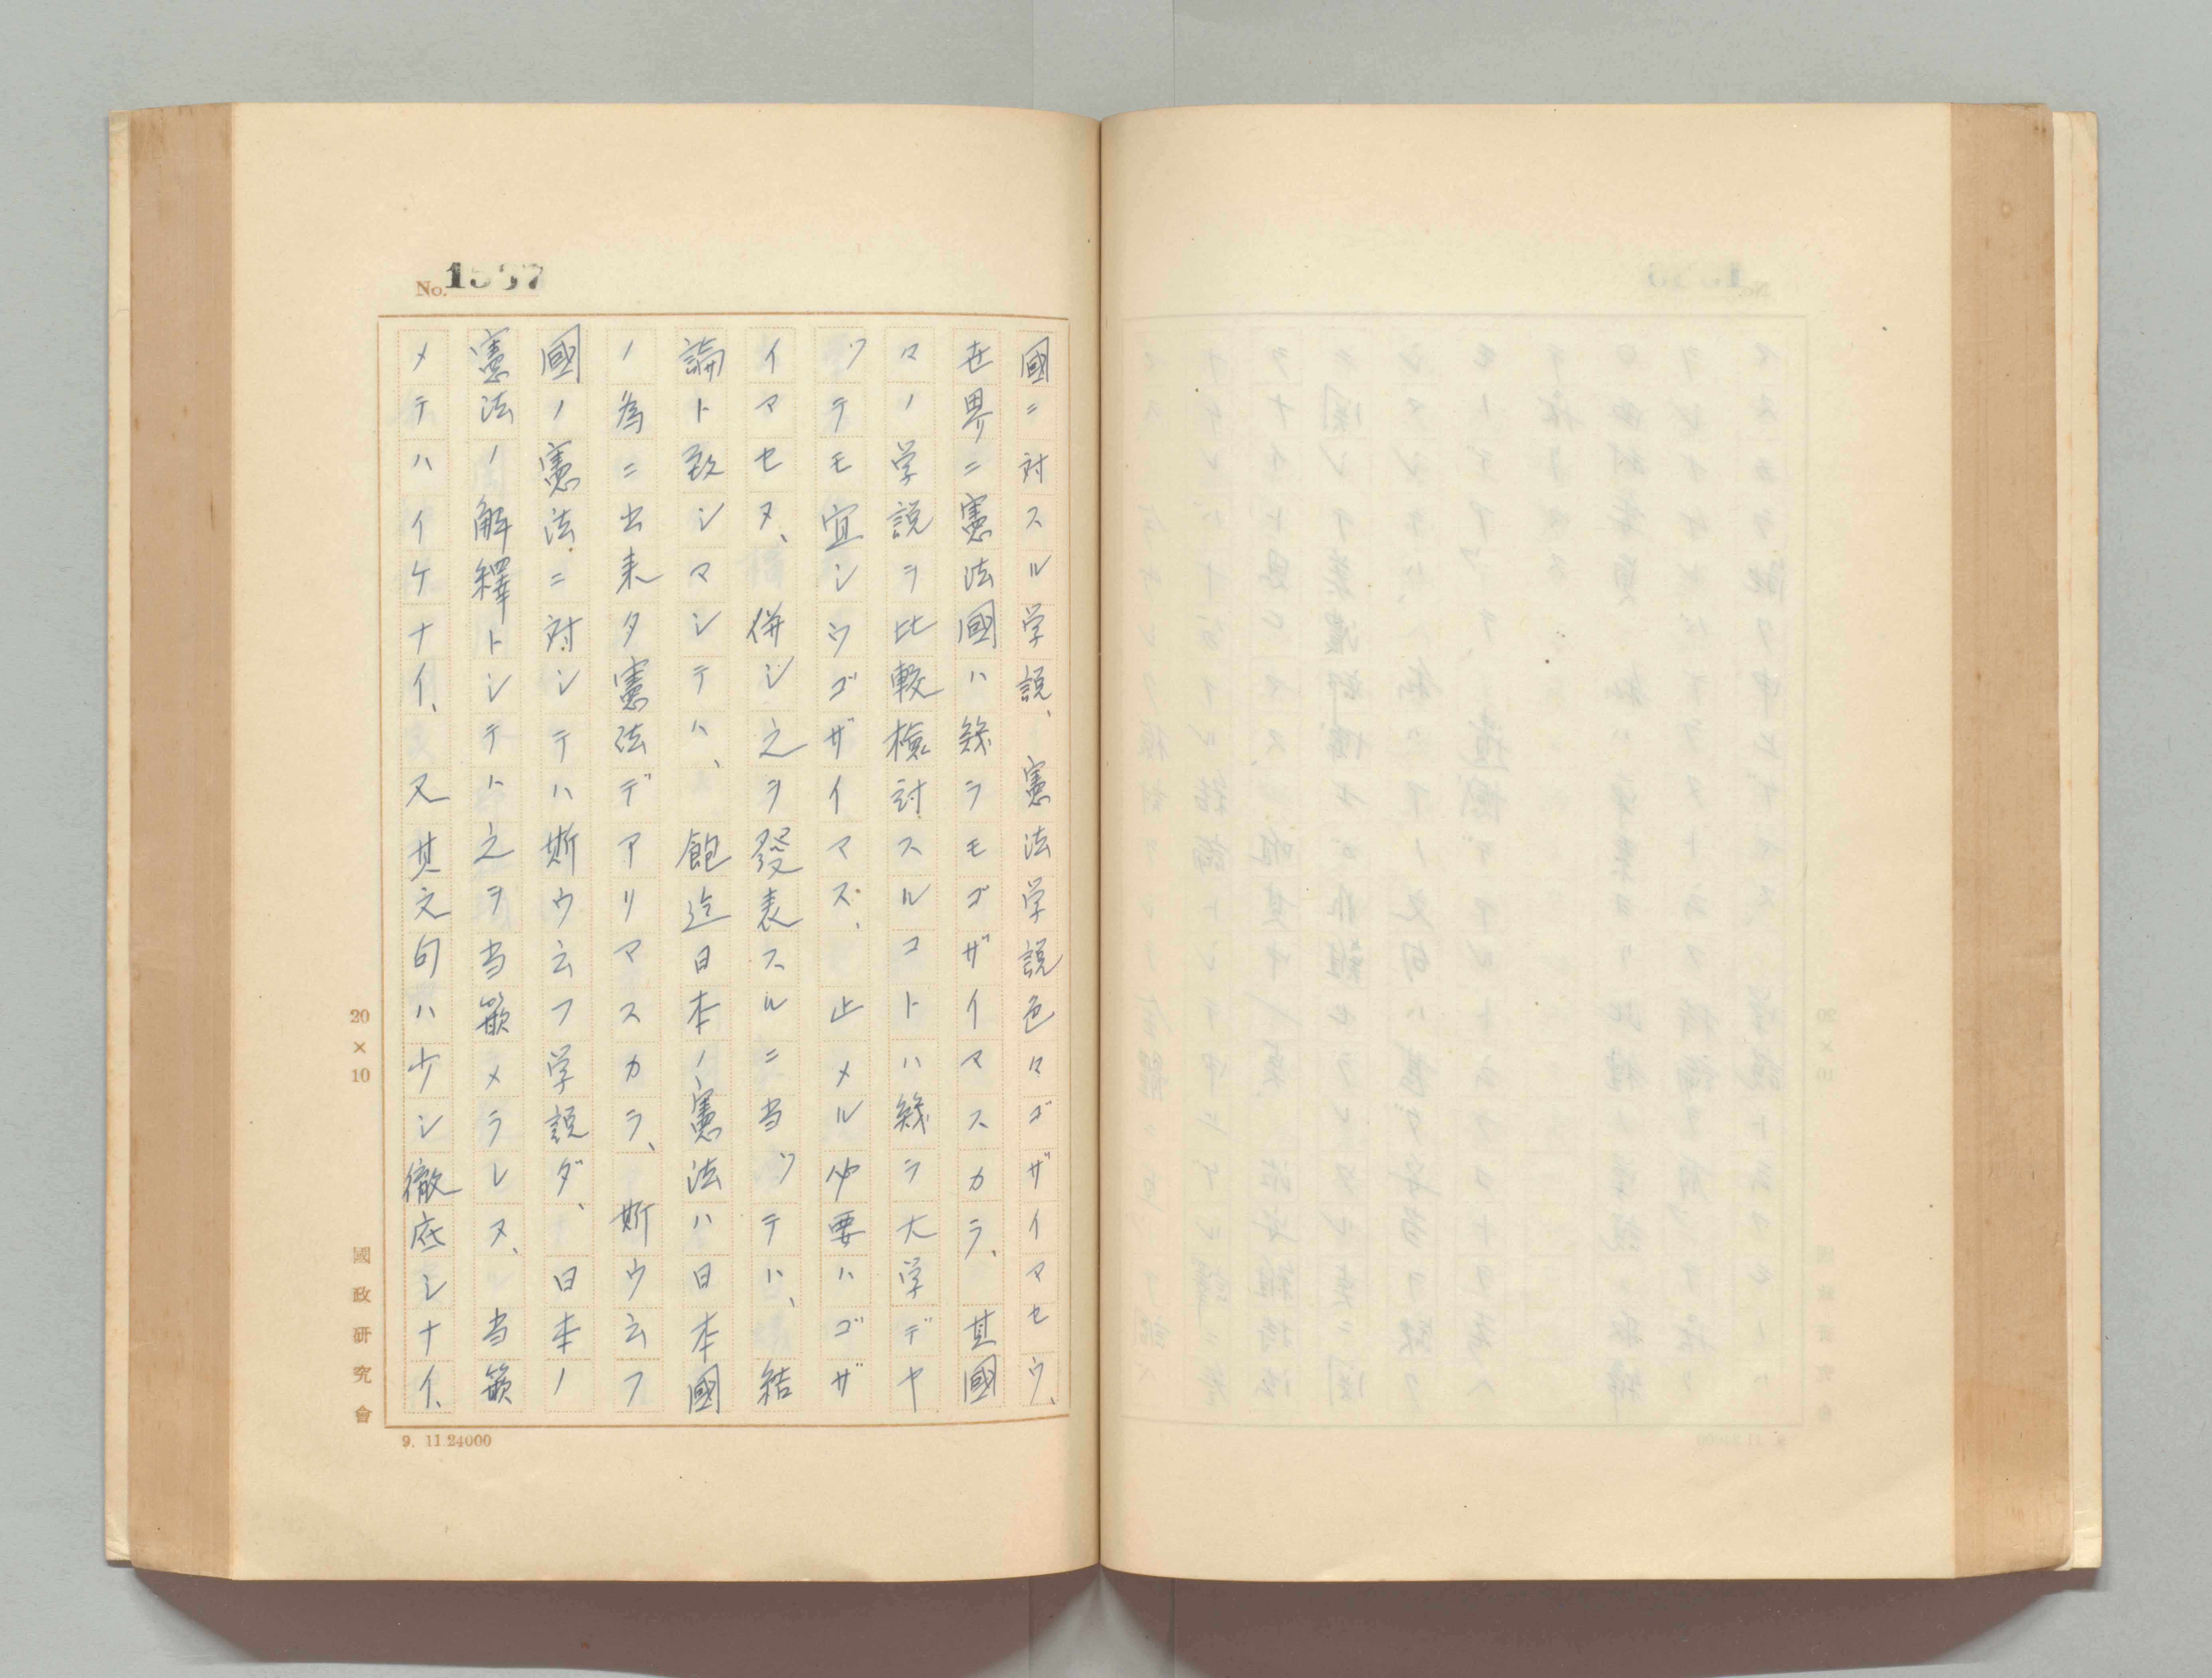 No. 1537
國ニ対スル学説、憲法学説色々ゴザイマセウ、
世界ニ憲法國ハ幾ラモゴザイマスカラ、其國
々ノ学説ヲ比較檢討スルコトハ幾ラ大学デヤ
ツテモ宜シウゴザイマズ、止メル必要ハゴザ
イマセヌ、併シ之ヲ發表スルニ当ツテハ、結
論ト致シマシテハ、飽迄日本ノ憲法ハ日本國
ノ為ニ出来タ憲法デアリマスカラ、斯ウ云フ
國ノ憲法ニ対シテハ斯ウ云フ学説ダ、日本ノ
憲法ノ解釋トシテハ之ヲ当篏メラレヌ、当篏
メテハイケナイ、又其文句ハ少シ徹底シナイ、
20×10
國政研究會
9. 11.24000